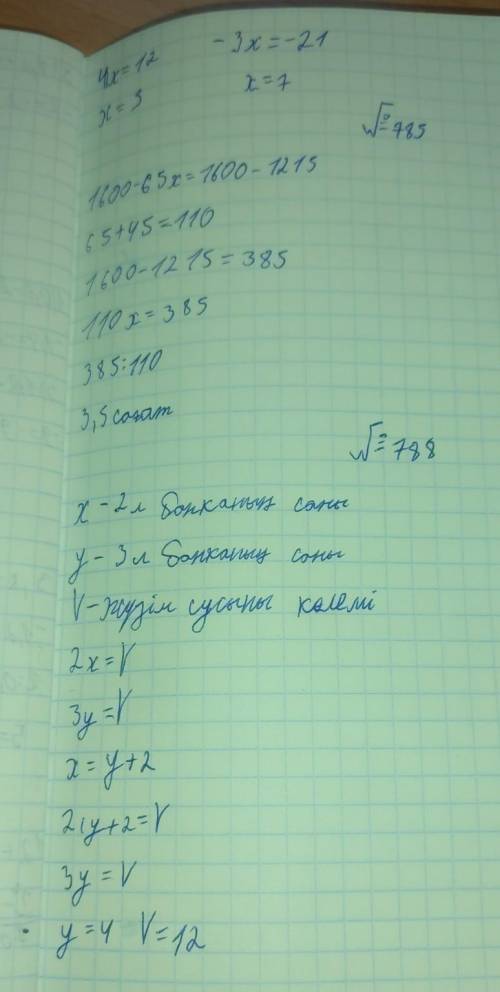 4x=12 -3x=-21
x=3 x=7
№785
1600-65x=1600-1215
65+45=110
1600-1215=385
110x=385
385:110
3,5 сағат
№788
x-2л банканың саны
y-3л банканың саны
V-жүзім сусыны көлемі
2x=V
3y=V
x=y+2
2(y+2=V
3y=V
y=4 V=12